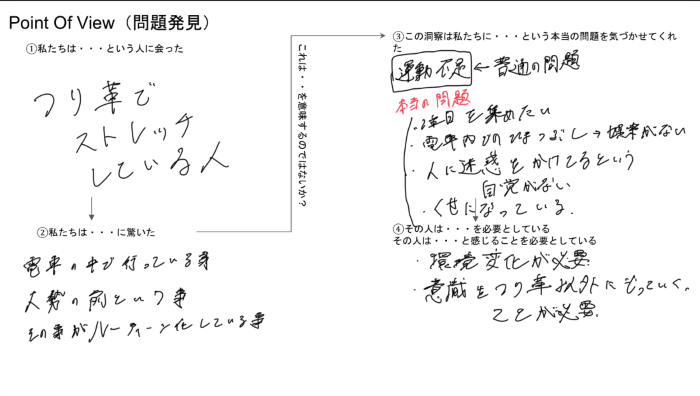 Point Of View（問題発見）
①私たちは・・・という人に会った
つり革で
ストレッチ
している人
②私たちは・・・に驚いた
電車の中で行っている事
大勢の前という事
その事がルーティーン化している事
これは・・を意味するのではないか？
③この洞察は私たちに・・・という本当の問題を気づかせてくれ
た
運動不足 ← 普通の問題
本当の問題
・注目を集めたい
・電車内でのひまつぶし→提案がない
・人に迷惑をかけてるという
自覚がない
・くせになっている.
④その人は・・・を必要としている
その人は・・・と感じることを必要としている
・環境変化が必要
・意識をつり革以外にもっていく
ことが必要.